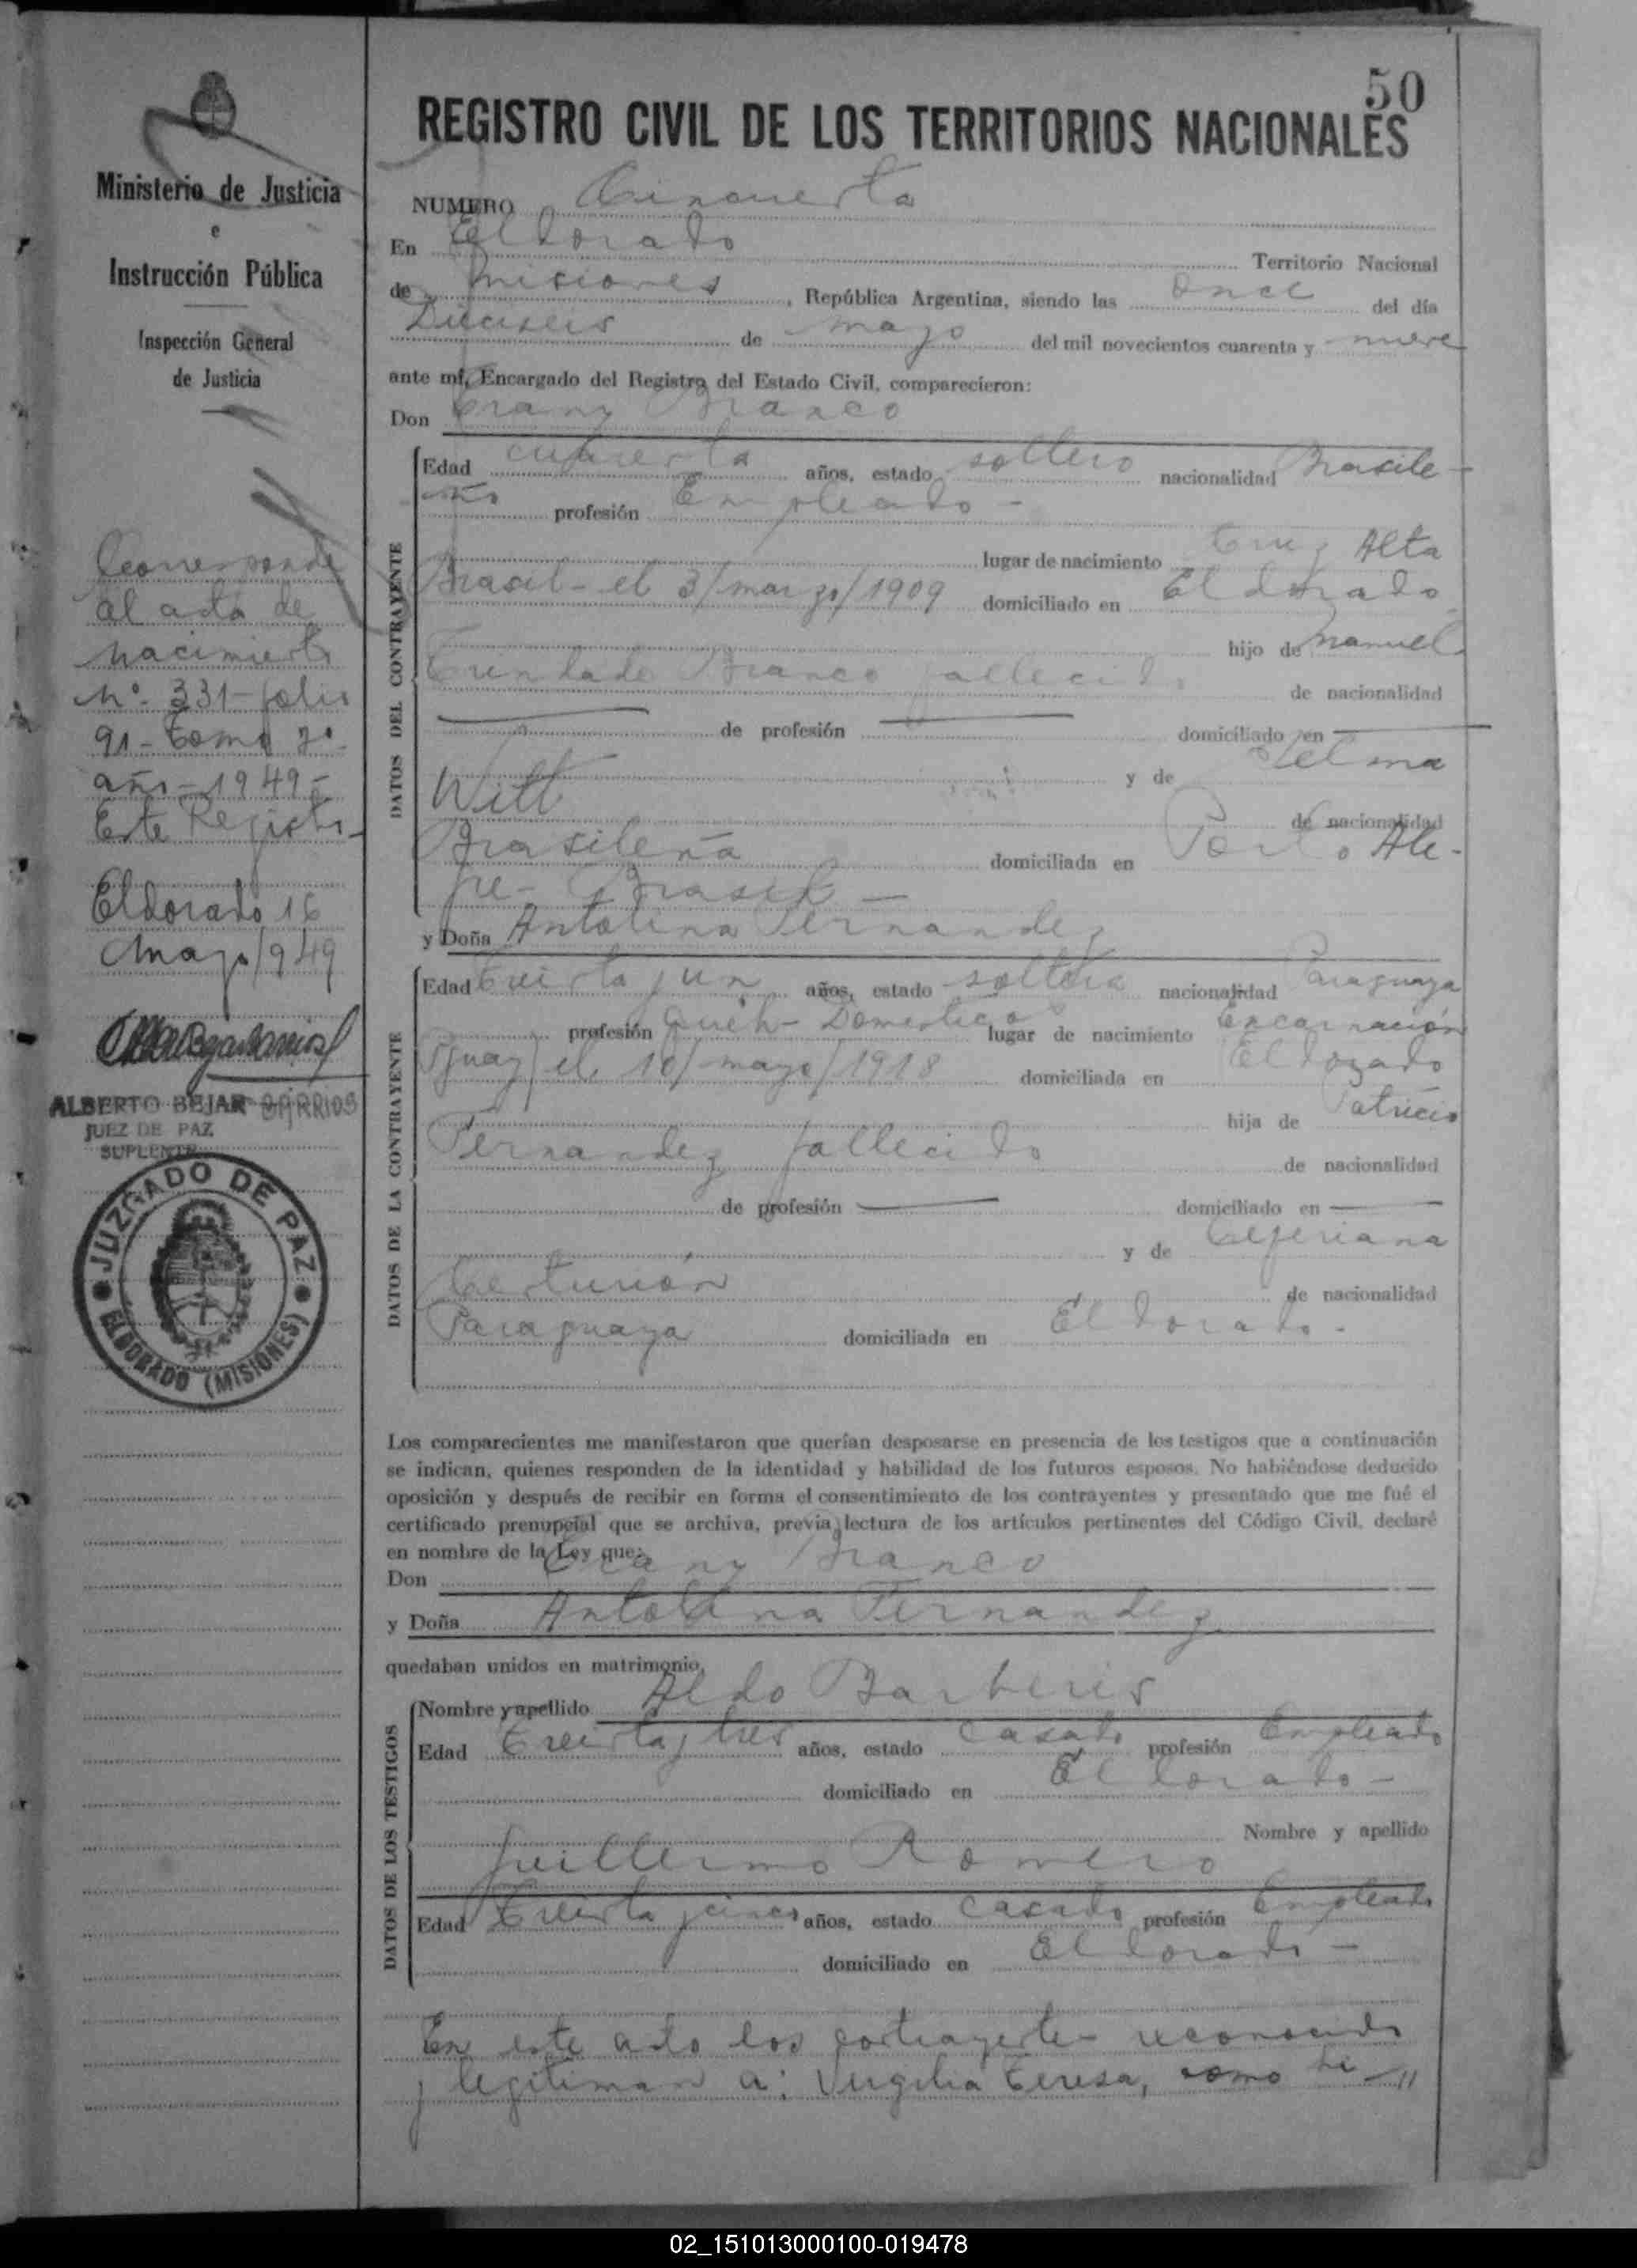 50
REGISTRO CIVIL DE LOS TERRITORIOS NACIONALES
Ministerio de Justicia
e
Instrucción Pública
Inspección General
de Justicia
Corresponde
al acta de
nacimiento
Nº. 331-folio
91-Tomo 2º
año-1949-
Este Registro-
Eldorado 16
Mayo/949
ALBERTO BEJAR BARRIOS
JUEZ DE PAZ
SUPLENTE
JUZGADO DE PAZ
ELDORADO (MISIONES)
NUMERO Cincuenta
En Eldorado Territorio Nacional
de Misiones, República Argentina, siendo las once del día
Dieciseis de mayo del mil novecientos cuarenta y nueve
ante mí, Encargado del Registro del Estado Civil, comparecieron:
Don Erany Branco
DATOS DEL CONTRAYENTE
Edad cuarenta años, estado soltero nacionalidad Brasile-
ño profesión Empleado -
lugar de nacimiento Cruz Alta
Brasil - el 3/marzo/1909 domiciliado en Eldorado
hijo de Manuel
Trindade Branco fallecido de nacionalidad
de profesión domiciliado en
y de Selma
Witt de nacionalidad
Brasileña domiciliada en Porto Ale-
gre - Brasil -
y Doña Antolina Fernandez
DATOS DE LA CONTRAYENTE
Edad Treinta y un años, estado soltera nacionalidad Paraguaya
profesión Queh- Domestico lugar de nacimiento Encarnación
guay) el 10/mayo/1918 domiciliada en Eldorado
hija de Patricio
Fernandez fallecido de nacionalidad
de profesión domiciliado en
y de Ceferiana
Centurión de nacionalidad
Paraguaya domiciliada en Eldorado.
Los comparecientes me manifestaron que querían desposarse en presencia de los testigos que a continuación
se indican, quienes responden de la identidad y habilidad de los futuros esposos. No habiéndose deducido
oposición y después de recibir en forma el consentimiento de los contrayentes y presentado que me fué el
certificado prenupcial que se archiva, previa lectura de los artículos pertinentes del Código Civil, declaré
en nombre de la Ley que:
Don Erany Branco
y Doña Antolina Fernandez
quedaban unidos en matrimonio.
DATOS DE LOS TESTIGOS
Nombre y apellido Aldo Barberis
Edad Treinta y tres años, estado casado profesión Empleado
domiciliado en Eldorado -
Nombre y apellido
Guillermo Romero
Edad Treinta y cinco años, estado casado profesión Empleado
domiciliado en Eldorado -
En este acto los contrayentes reconociendo
y legitiman a: Virgilia Teresa, como hi-"
02_151013000100-019478